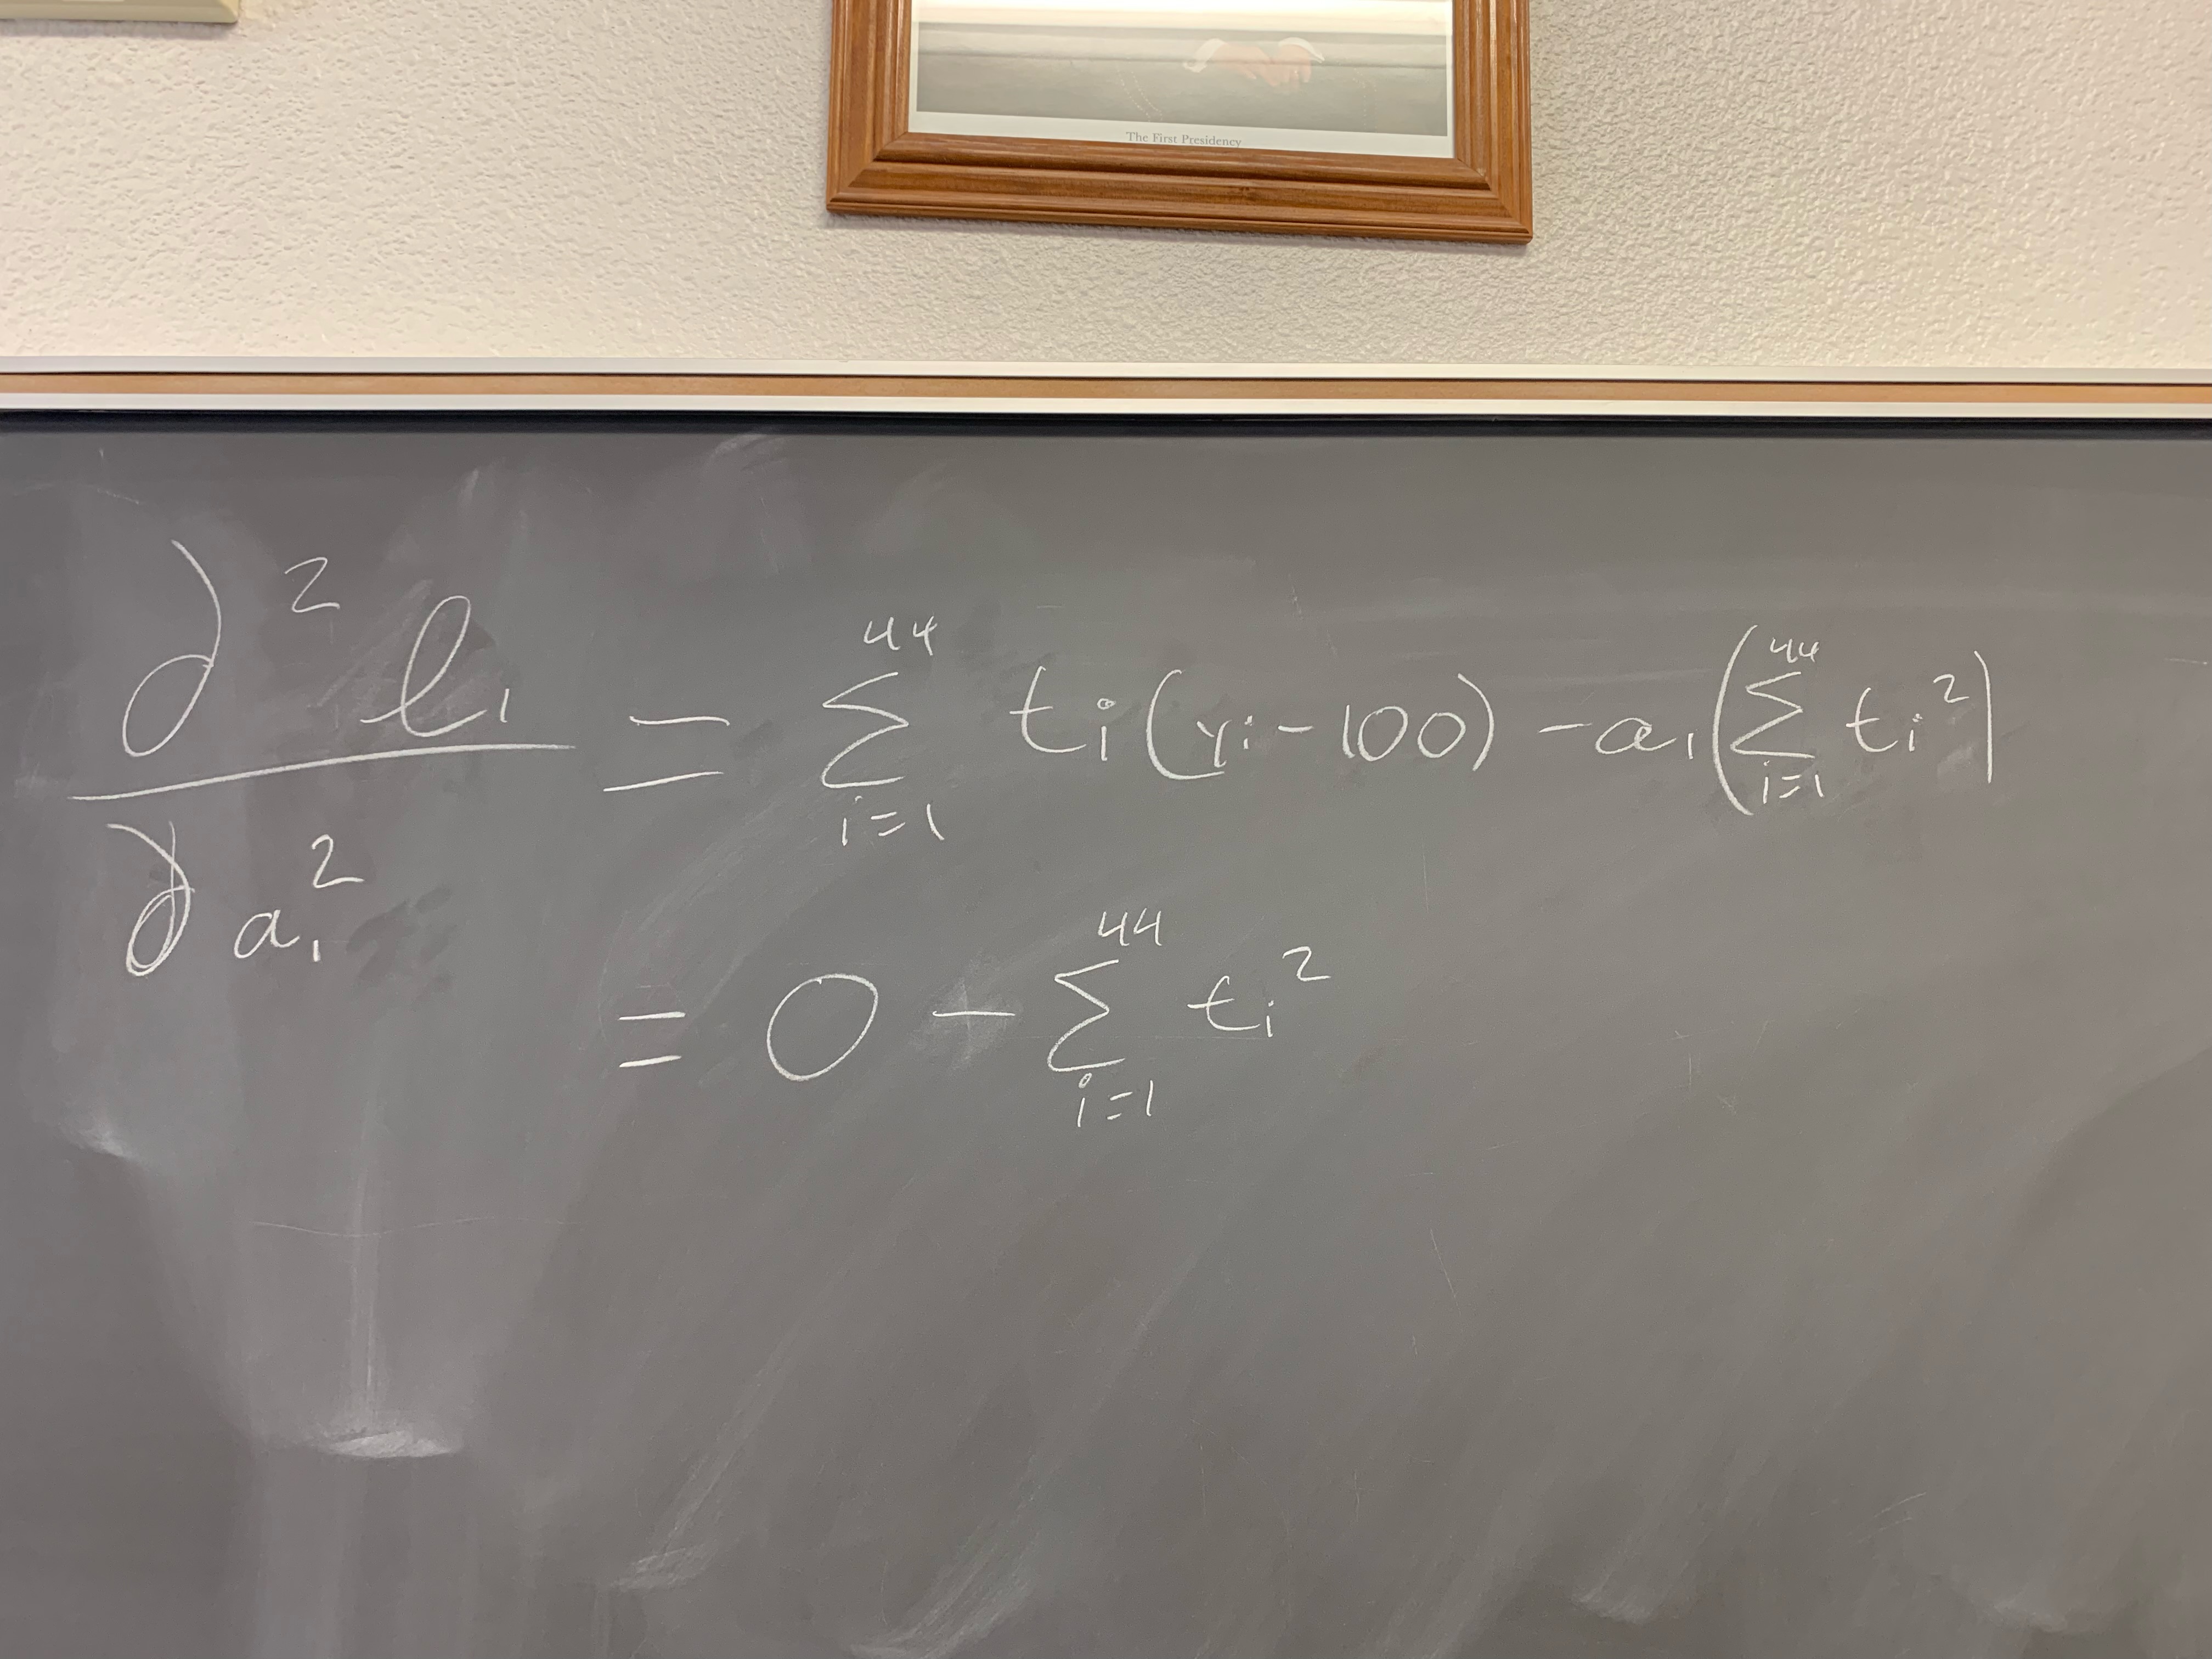 The First Presidency
∂² ℓ₁ / ∂a₁² = ∑_{i=1}^{44} tᵢ(yᵢ - 100) - a₁(∑_{i=1}^{44} tᵢ²)
= 0 - ∑_{i=1}^{44} tᵢ²